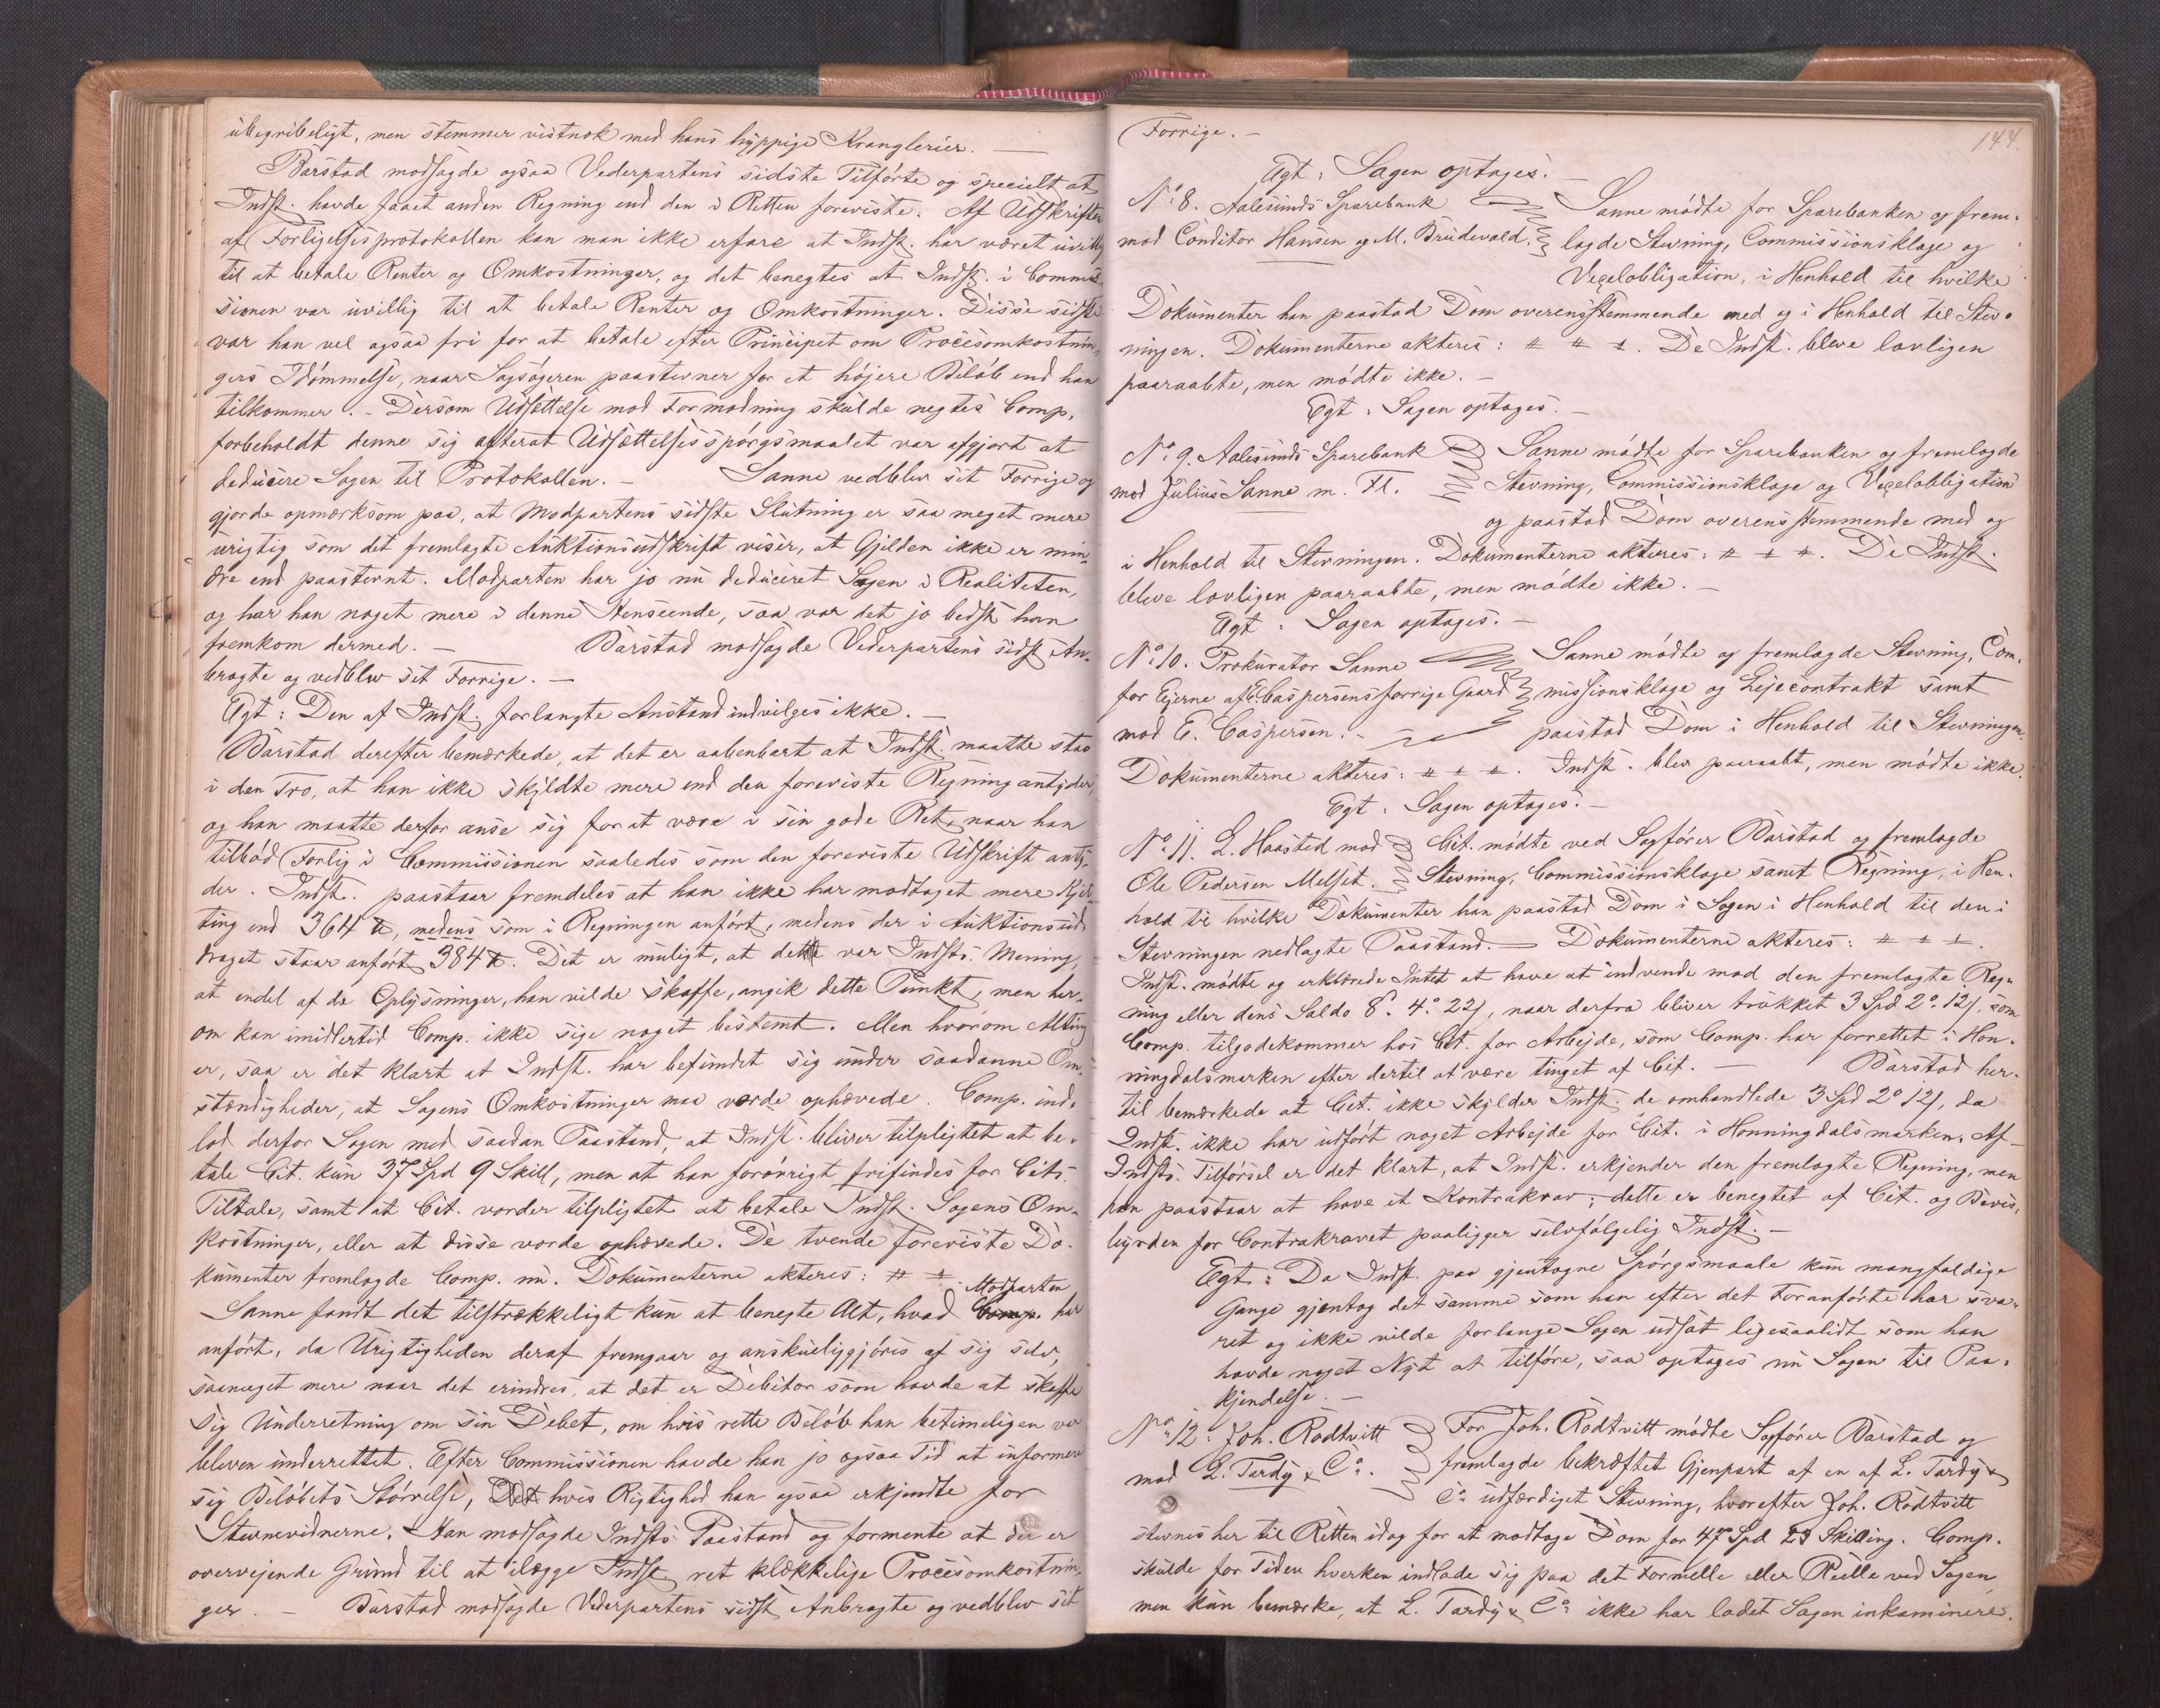 ubegribeligt, men stemmer vistnok med hans hyppige Kranglerier. —
Barstad modsagde ogsaa Vederpartens sidste Tilførte og specielt at
Indst. havde faaet anden Regning end den i Retten foreviste. Af Udskriften
af Forligelsesprotokollen kan man ikke erfare at Indst. har været uvillig
til at betale Renter og Omkostninger, og det benegtes at Indst. i Commis-
sionen var uvillig til at betale Renter og Omkostninger. Disse sidste
var han vel ogsaa fri for at betale efter Principet om Procesomkostnin-
gers Idømmelse, naar Sagsøgeren paastevner for et højere Beløb end han
tilkommer. – Dersom Udsættelse mod Formodning skulde negtes Comp.
forbeholdt denne sig afterat Udsættelsesspørgsmaalet var afgjort at
deducere Sagen til Protokollen. – Sanne vedblev sit Forrige og
gjorde opmærksom paa, at Modpartens sidste Slutning er saa meget mere
urigtig som det fremlagte Auktionsudskrift viser, at Gjelden ikke er min-
dre end paastevnt. Modparten har jo nu deduceret Sagen i Realiteten,
og har han noget mere i denne Henseende, saa var det jo bedst han
fremkom dermed. – Barstad modsagde Vederpartens sidst An-
bragte og vedblev sit Forrige. –
Egt: Den af Indst. forlangte Anstand indvilges ikke. –
Barstad derefter bemærkede, at det er aabenbart at Indst. maatte staa
i den Tro, at han ikke skyldte mere end den foreviste Regning antyder,
og han maatte derfor anse sig for at være i sin gode Ret, naar han
tilbød Forlig i Commissionen saaledes som den foreviste Udskrift anty-
der. Indst. paastaar fremdeles at han ikke har modtaget mere Kjet-
ting end 364 ℔, medens som i Regningen anført, medens der i Auktionsud-
draget staar anført 384 ℔. Det er muligt, at dette var Indsts. Mening,
at endel af de Oplysninger, han vilde skaffe, angik dette Punkt, men her-
om kan imidlertid Comp. ikke sige noget bestemt. Men hvorom Alting
er, saa er det klart at Indst. har befundet sig under saadanne Om-
stændigheder, at Sagens Omkostninger maa vorde ophævede. Comp. ind-
lod derfor Sagen med saadan Paastand, at Indst. bliver tilpligtet at be-
tale Cit. kun 37 Spd 9 Skill, men at han forøvrigt frifindes for Cits.
Tiltale, samt at Cit. vorder tilpligtet at betale Indst. Sagens Om-
kostninger, eller at disse vorde ophævede. De tvende foreviste Do-
kumenter fremlagde Comp. nu. Dokumenterne akteres: # #
Modparten
Sanne fandt det tilstrækkeligt kun at benegte Alt, hvad Comp. har
anført, da Urigtigheden deraf fremgaar og anskueliggjøres af sig selv,
saameget mere naar det erindres, at det er Debitor som havde at skaffe
sig Underretning om sin Debet, om hvis rette Beløb han betimeligen var
bleven underrettet. Efter Commissionen havde han jo ogsaa Tid at informere
sig Beløbets Størrelse, hvis Rigtighed han ogsaa erkjendte for
Stevnevidnerne. Han modsagde Indsts Paastand og formente at der er
overvejende Grund til at ilægge Indst. ret klækkelige Procesomkostnin-
ger. – Barstad modsagde Vederpartens sidst Anbragte og vedblev sit
144.
Forrige. –
Egt: Sagen optages. –
No 8. Aalesunds Sparebank
mod Conditor Hansen og M. Brudevold.
Sanne mødte for Sparebanken og frem-
lagde Stevning, Commissionsklage og
Vexelobligation, i Henhold til hvilke
Dokumenter han paastod Dom overensstemmende med og i Henhold til Stev-
ningen. Dokumenterne akteres: # # #. De Indst. bleve lovligen
paaraabte, men mødte ikke. –
Egt: Sagen optages. –
No 9. Aalesunds Sparebank
mod Julius Sanne m. Fl.
Sanne mødte for Sparebanken og fremlagde
Stevning, Commissionsklage og Vexelobligation
og paastod Dom overensstemmende med og
i Henhold til Stevningen. Dokumenterne akteres: # # #. De Indst.
bleve lovligen paaraabte, men mødte ikke. –
Egt: Sagen optages. –
No 10. Prokurator Sanne
for Ejerne af E. Caspersens forrige Gaard
mod E. Caspersen. –
Sanne mødte og fremlagde Stevning, Com-
missionsklage og Lejecontrakt samt
paastod Dom i Henhold til Stevningen.
Dokumenterne akteres: # # #. Indst. blev paaraabt, men mødte ikke.
Egt: Sagen optages. –
No 11. L. Haasted mod
Ole Pedersen Melset.
Cit. mødte ved Sagfører Barstad og fremlagde
Stevning, Commissionsklage samt Regning, i Hen-
hold til hvilke Dokumenter han paastod Dom i Sagen i Henhold til den i
Stevningen nedlagte Paastand. — Dokumenterne akteres: # # #.
Indst. mødte og erklærede Intet at have at indvende mod den fremlagte Reg-
ning eller dens Saldo 8. 4. 22, naar derfra bliver trukket 3 Spd 2. 12, som
Comp. tilgodekommer hos Cit. for Arbejde, som Comp. har forrettet i Hon-
ningdalsmarken efter dertil at være tinget af Cit. — Barstad her-
til bemærkede at Cit. ikke skylder Indst. de omhandlede 3 Spd 2. 12, da
Indst. ikke har udført noget Arbejde for Cit. i Honningdalsmarken. Af
Indsts. Tilførsel er det klart, at Indst. erkjender den fremlagte Regning, men
han paastaar at have et Kontrakrav; dette er benegtet af Cit. og Bevis-
byrden for Contrakravet paaligger selvfølgelig Indst. –
Egt: Da Indst. paa gjentagne Spørgsmaale kun mangfoldige
Gange gjentog det samme som han efter det Foranførte har sva-
ret og ikke vilde forlange Sagen udsat ligesaalidt som han
havde noget Nyt at tilføre, saa optages nu Sagen til Paa-
kjendelse. –
No 12. Joh. Rødtvitt
mod L. Tardy & Co.
For Joh. Rødtvitt mødte Sagfører Barstad og
fremlagde bekræftet Gjenpart af en af L. Tardy &
Co udfærdiget Stevning, hvorefter Joh. Rødtvitt
stevnes her til Retten idag for at modtage Dom for 47 Spd 23 Skilling. Comp.
skulde for Tiden hverken indlade sig paa det Formelle eller Reelle ved Sagen,
men kun bemærke, at L. Tardy & Co ikke har ladet Sagen inkaminere.